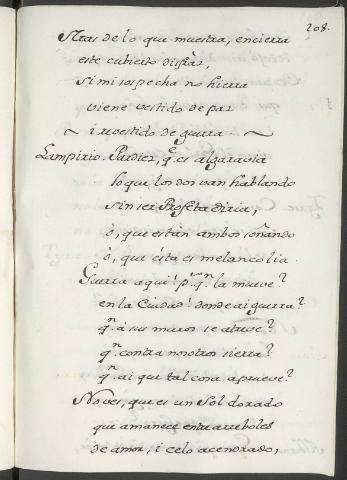 208.
Mras de lo que muestra, encierra
este cubierto disfàz,
si mi sospecha no hierra
viene vestido de paz
~ i revestido de guerra. ~
Lampirio. Pardiez, q.e es algaravia
lo que los dos van hablando
sin ser Profeta diria,
ò, que estàn ambos soñando
ò, que ésta es melancolia.
Guerra aqui! p.r q.n la mueve?
en la Ciudad! donde ai guerra?
q.n à sus muros se atreve?
q.n contra nosotros sierra?
q.n ai que tal cosa aprueve?
No ves, que es un Sol dorado
que amanece entre arreboles
de amor, i celo acendrado,